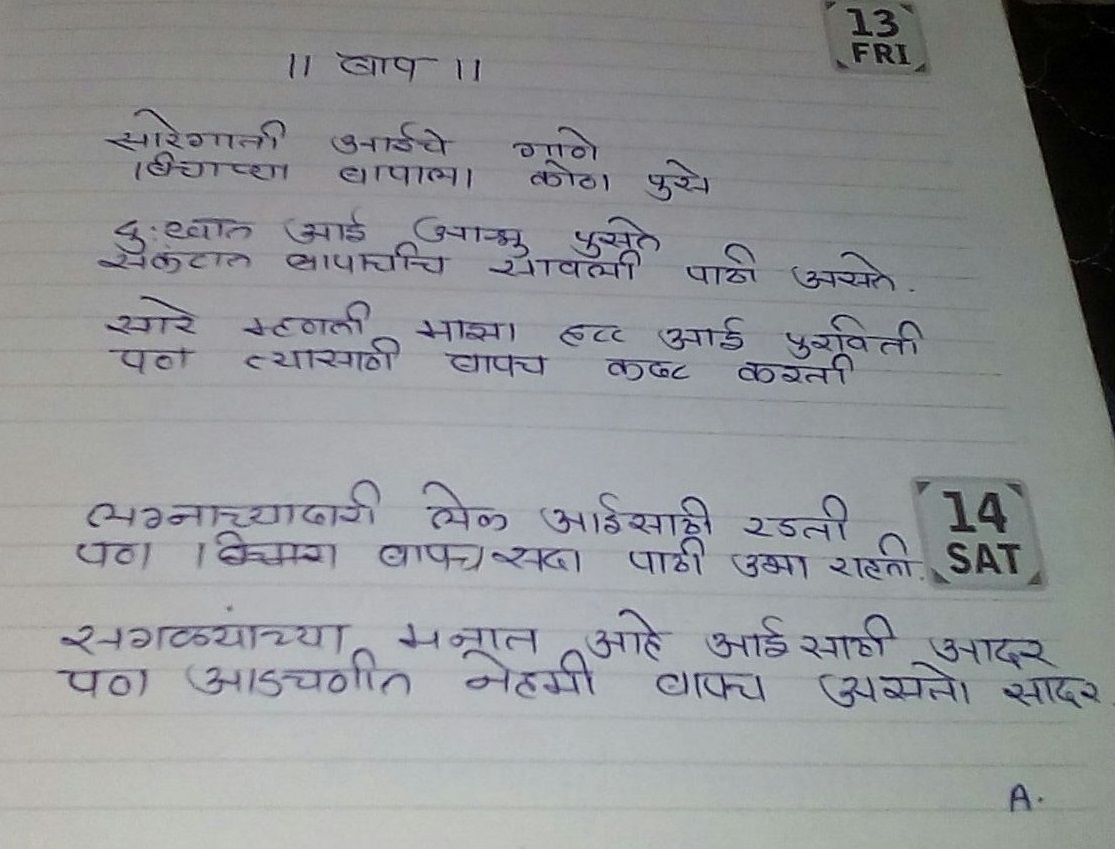 13
FRI
|| बाप ||
सारेगाती आईचे गाणे
बिचाऱ्या बापाला कोण पुसे
दुःखात आई आश्रु पुसते
संकटात बापाचीच सावली पाठी असते.
सारे म्हणती माझा हट्ट आई पुरविती
पण त्यासाठी बापच कष्ट करती
लग्नाच्यादारी लेक आईसाठी रडती
पण बिचारा बापच सदा पाठी उभा राहती.
14
SAT
सगळ्यांच्या मनात आहे आईसाठी आदर
पण आडचणीत नेहमी बापच असतो सादर
A.